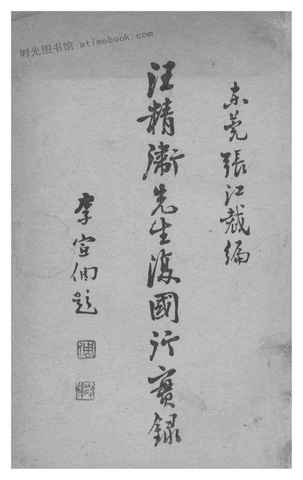 时光图书馆 · atimebook.com
東莞張江裁編
汪精衛先生復國行實錄
李宣倜題